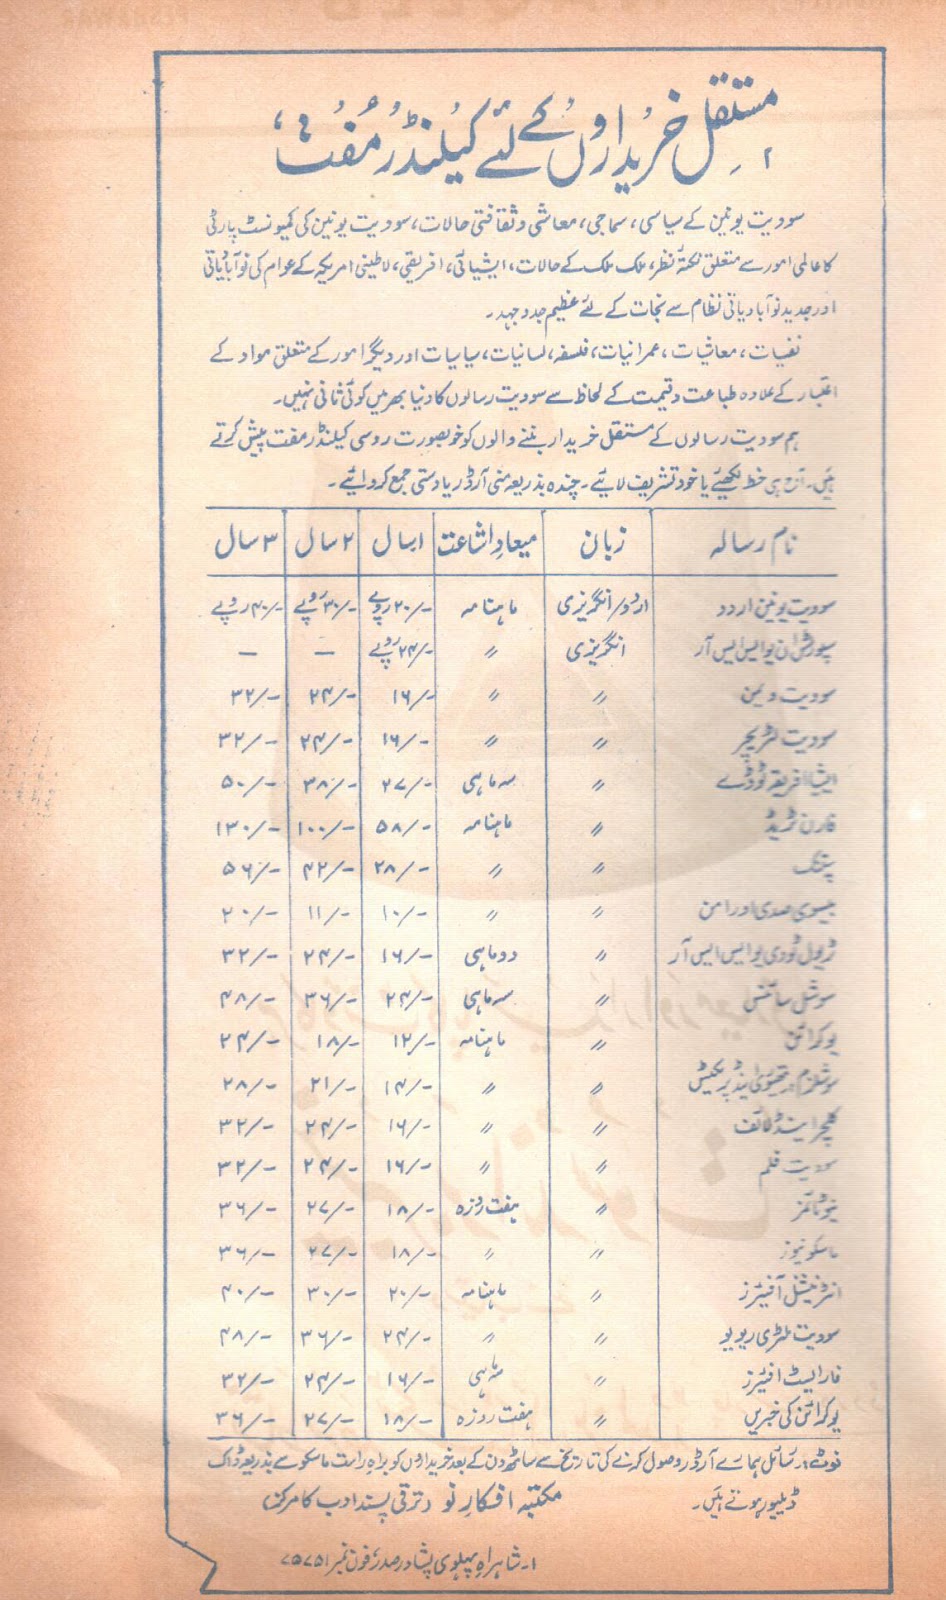 مستقل خریداروں کے لئے کیلنڈر مُفت
سوویت یونین کے سیاسی، سماجی، معاشی و ثقافتی حالات، سوویت یونین کی کمیونسٹ پارٹی
کا عالمی امور سے متعلق نکتۂ نظر، ملک ملک کے حالات، ایشیائی، افریقی، لاطینی امریکہ کے عوام کی نوآبادیاتی
اور جدید نوآبادیاتی نظام سے نجات کے لئے عظیم جدوجہد۔
نفسیات، معاشیات، عمرانیات، فلسفہ، لسانیات، سیاسیات اور دیگر امور کے متعلق مواد کے
اعتبار کے علاوہ طباعت و قیمت کے لحاظ سے سوویت رسالوں کا دنیا بھر میں کوئی ثانی نہیں۔
ہم سوویت رسالوں کے مستقل خریدار بننے والوں کو خوبصورت روسی کیلنڈر مفت پیش کرتے
ہیں۔ آج ہی خط لکھیئے یا خود تشریف لائیے۔ چندہ بذریعہ منی آرڈر یا دستی جمع کروائیے۔
نام رسالہ زبان میعادِ اشاعت ۱سال ۲سال ۳سال
سوویت یونین اردو اردو/انگریزی ماہنامہ ۲۰/- روپے ۳۰/- روپے ۴۰/- روپے
سپورٹس ان یو ایس ایس آر انگریزی 〃 ۲۴/- روپے – –
سوویت ویمن 〃 〃 ۱۶/- ۲۴/- ۳۲/-
سوویت لٹریچر 〃 〃 ۱۶/- ۲۴/- ۳۲/-
ایشیا افریقہ ٹوڈے 〃 سہ ماہی ۲۷/- ۳۸/- ۵۰/-
فارن ٹریڈ 〃 ماہنامہ ۵۸/- ۱۰۰/- ۱۳۰/-
〃 〃 ۲۸/- ۴۲/- ۵۶/-
بیسوی صدی اور امن 〃 〃 ۱۰/- ۱۱/- ۲۰/-
ٹریول ٹو دی یو ایس ایس آر 〃 دو ماہی ۱۶/- ۲۴/- ۳۲/-
سوشل سائنس 〃 سہ ماہی ۲۴/- ۳۶/- ۴۸/-
یوکرائن 〃 ماہنامہ ۱۲/- ۱۸/- ۲۴/-
سوشلزم تھیوری اینڈ پریکٹس 〃 〃 ۱۴/- ۲۱/- ۲۸/-
کلچر اینڈ لائف 〃 〃 ۱۶/- ۲۴/- ۳۲/-
سوویت فلم 〃 〃 ۱۶/- ۲۴/- ۳۲/-
نیو ٹائمز 〃 ہفت روزہ ۱۸/- ۲۷/- ۳۶/-
ماسکو نیوز 〃 〃 ۱۸/- ۲۷/- ۳۶/-
انٹرنیشنل آفیئرز 〃 ماہنامہ ۲۰/- ۳۰/- ۴۰/-
سوویت ملٹری ریویو 〃 〃 ۲۴/- ۳۶/- ۴۸/-
فار ایسٹ افیئرز 〃 سہ ماہی ۱۶/- ۲۴/- ۳۲/-
یوکرائن کی خبریں 〃 ہفت روزہ ۱۸/- ۲۷/- ۳۶/-
نوٹ:۔ رسائل ہمارے آرڈر وصول کرنے کی تاریخ سے ساٹھ دن کے بعد خریداروں کو براہِ راست ماسکو سے بذریعہ ڈاک
ڈیلیور ہوتے ہیں۔ مکتبہ افکارِ نو (ترقی پسند ادب کا مرکز)
۱۔ شاہراہِ پہلوی پشاور صدر، فون نمبر ۷۵۷۵۱